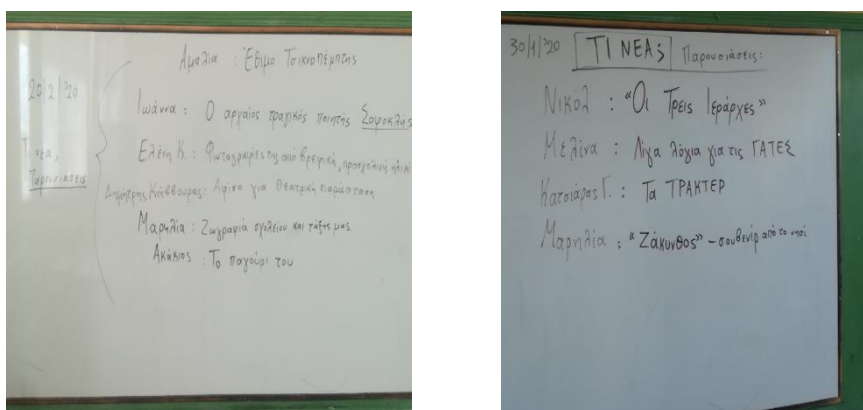 Αμαλία : Έθιμο Τσικνοπέμπτης
20/2/'20
Ιωάννα : Ο αρχαίος τραγικός ποιητής Σοφοκλής
Τι νέα,
Παρουσιάσεις
Ελένη Κ. : Φωτογραφίες της από βρεφική, προσχολική ηλικία
Δημήτρης : Αφίσα για θεατρική παράσταση
Μαρηλία : Ζωγραφιά σχολείου και τάξης μας
Ακάκιος : Το παγούρι του
30/1/'20 ΤΙ ΝΕΑ; Παρουσιάσεις:
Νικόλ : "Οι Τρεις Ιεράρχες"
Μελίνα : Λίγα λόγια για τις ΓΑΤΕΣ
Κατσιάρας Γ. : Τα ΤΡΑΚΤΕΡ
Μαρηλία : "Ζάκυνθος" - σουβενίρ από το νησί